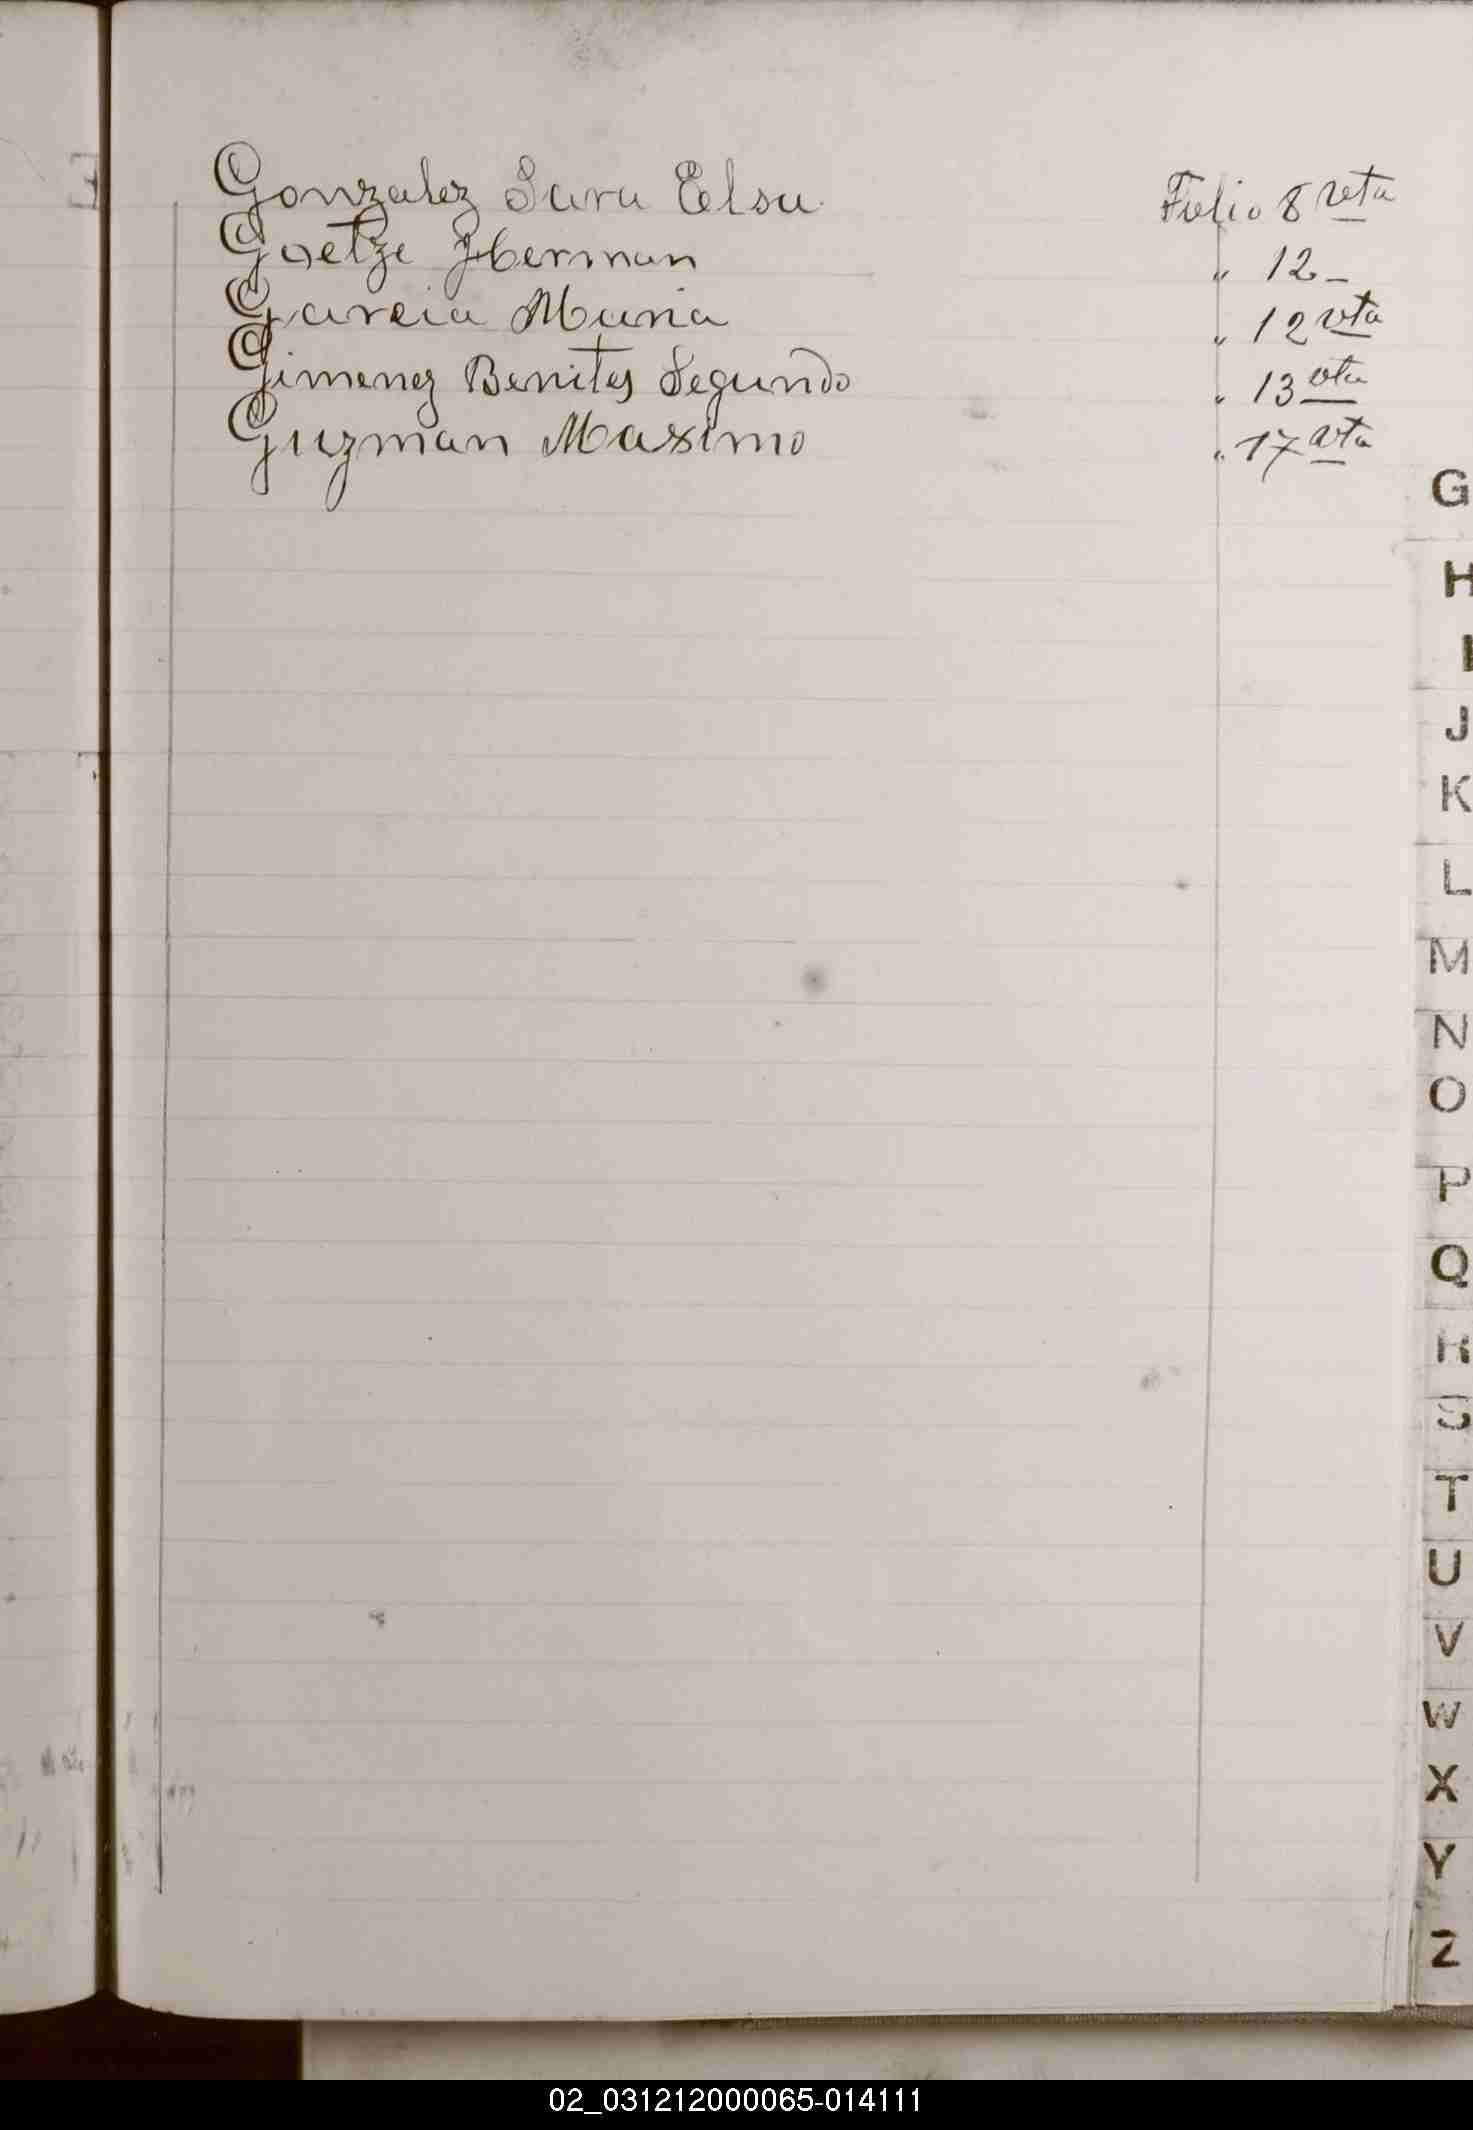 Gonzalez Sara Elsa Folio 8 vta
Goetze Herman " 12 -
Garcia Maria " 12 vta
Gimenez Benites Segundo " 13 vta
Guzman Maximo " 17 vta
G
H
I
J
K
L
M
N
O
P
Q
R
S
T
U
V
W
X
Y
Z
02_031212000065-014111